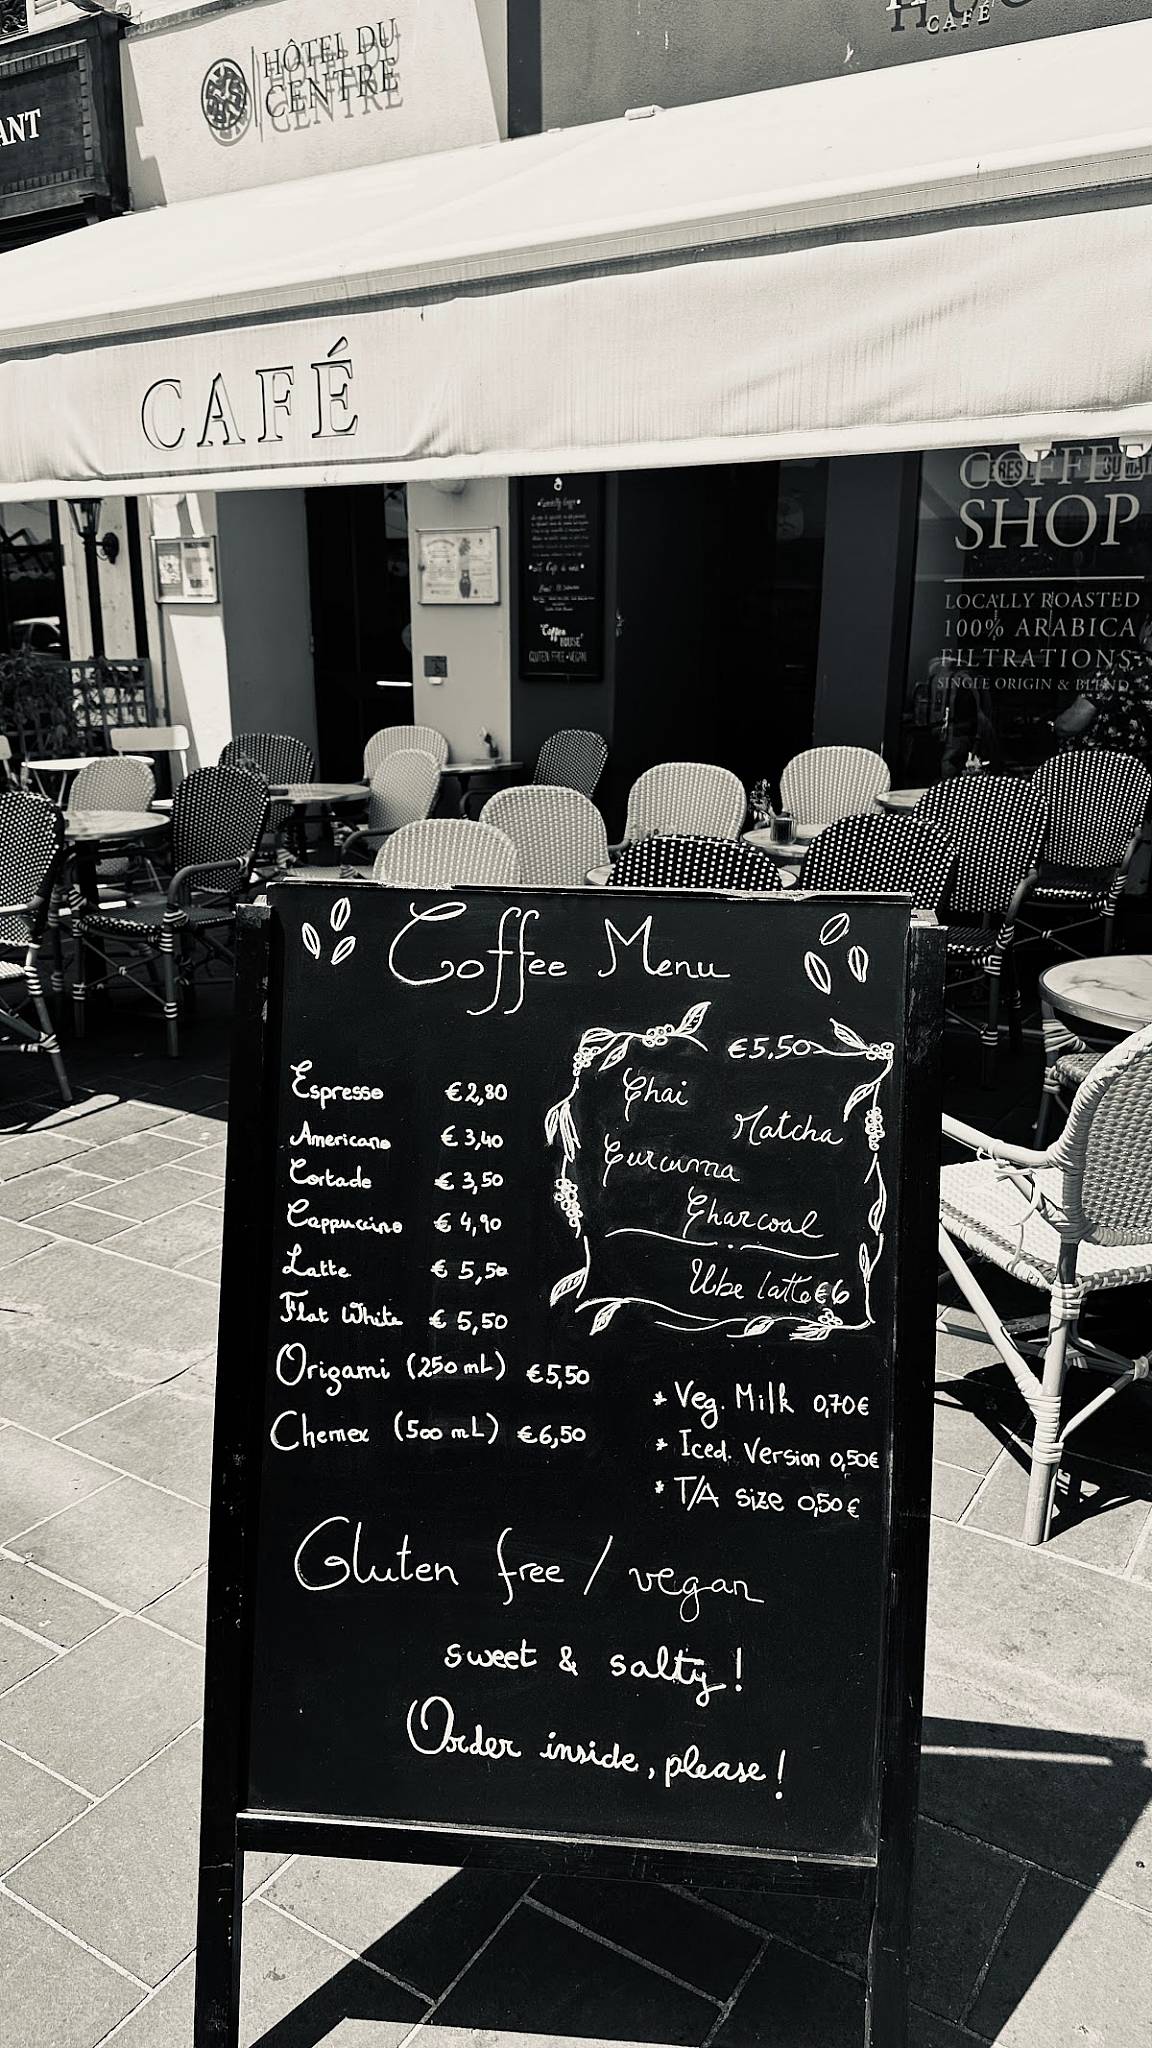 HÔTEL DU
CENTRE
ANT
CAFÉ
CAFÉ
COFFEE
SHOP
LOCALLY ROASTED
100% ARABICA
FILTRATIONS
SINGLE ORIGIN & BLEND
"Coffee
HOUSE"
GLUTEN FREE • VEGAN
Coffee Menu
Espresso €2,80
Americano €3,40
Cortado €3,50
Cappuccino €4,90
Latte €5,50
Flat White €5,50
Origami (250 mL) €5,50
Chemex (500 mL) €6,50
€5.50
Chai
Matcha
Curcuma
Charcoal
Ube latte €6
* Veg. Milk 0,70€
* Iced. Version 0,50€
* T/A size 0,50€
Gluten free / vegan
sweet & salty!
Order inside, please!